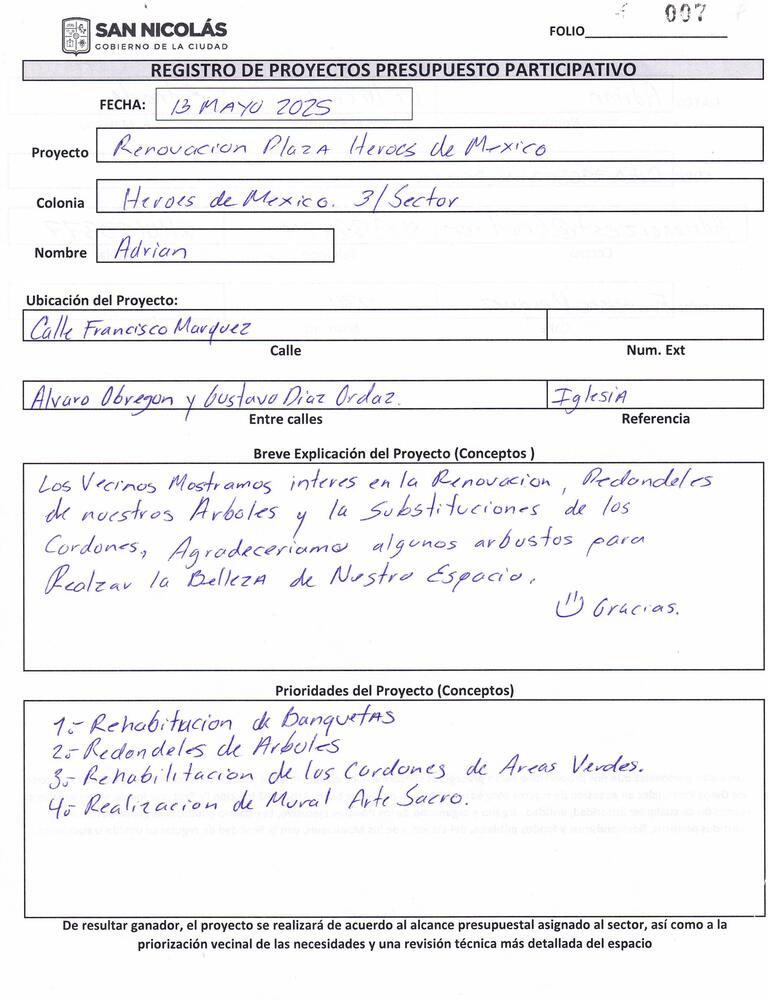 SAN NICOLÁS
GOBIERNO DE LA CIUDAD
FOLIO 007
REGISTRO DE PROYECTOS PRESUPUESTO PARTICIPATIVO
FECHA: 13 MAYO 2025
Proyecto Renovacion Plaza Heroes de Mexico
Colonia Heroes de Mexico. 3/Sector
Nombre Adrian
Ubicación del Proyecto:
Calle Francisco Marquez
Calle Num. Ext
Alvaro Obregon y Gustavo Diaz Ordaz. Iglesia
Entre calles Referencia
Breve Explicación del Proyecto (Conceptos )
Los Vecinos Mostramos interes en la Renovacion, Redondeles
de nuestros Arboles y la Substituciones de los
Cordones, Agradeceriamos algunos arbustos para
Realzar la Belleza de Nuestro Espacio.
Gracias.
Prioridades del Proyecto (Conceptos)
1.- Rehabitacion de Banquetas
2.- Redondeles de Arboles
3.- Rehabilitacion de los Cordones de Areas Verdes.
4.- Realizacion de Mural Arte Sacro.
De resultar ganador, el proyecto se realizará de acuerdo al alcance presupuestal asignado al sector, así como a la
priorización vecinal de las necesidades y una revisión técnica más detallada del espacio